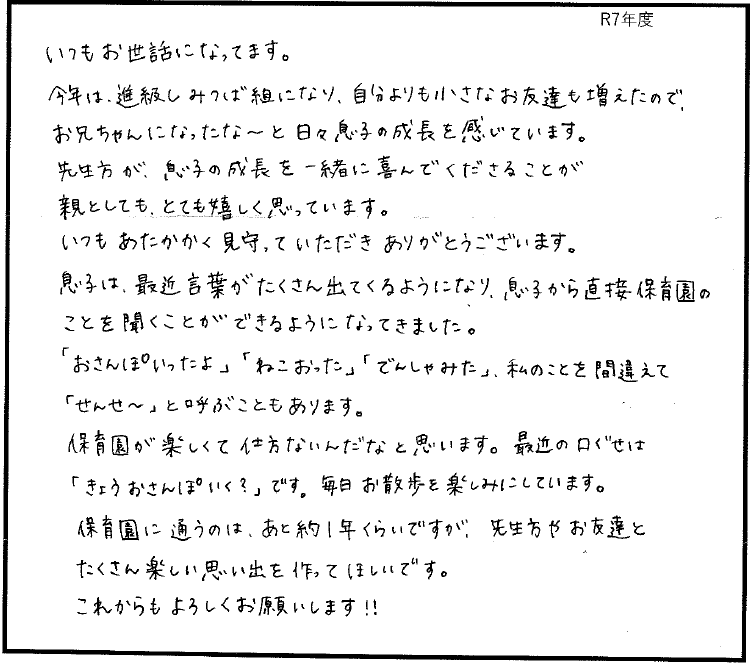 R7年度
いつもお世話になってます。
今年は、進級しみつば組になり、自分よりも小さなお友達も増えたので、
お兄ちゃんになったな〜と日々息子の成長を感じています。
先生方が、息子の成長を一緒に喜んでくださることが
親としても、とても嬉しく思っています。
いつもあたたかく見守っていただきありがとうございます。
息子は、最近言葉がたくさん出てくるようになり、息子から直接保育園の
ことを聞くことができるようになってきました。
「おさんぽいったよ」「ねこおった」「でんしゃみた」、私のことを間違えて
「せんせ〜」と呼ぶこともあります。
保育園が楽しくて仕方ないんだなと思います。最近の口ぐせは
「きょうおさんぽいく?」です。毎日お散歩を楽しみにしています。
保育園に通うのは、あと約1年くらいですが、先生方やお友達と
たくさん楽しい思い出を作ってほしいです。
これからもよろしくお願いします!!